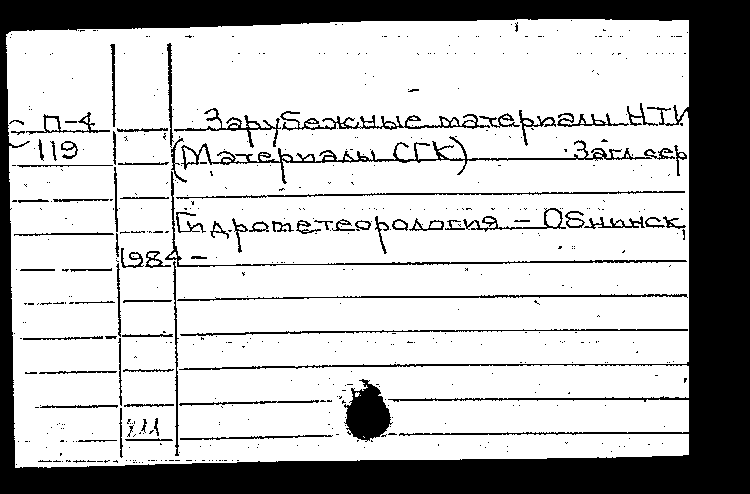 С П-4 Зарубежные материалы НТИ
119 (Материалы СГК) Загл сер
Гидрометеорология - Обнинск,
1984 -